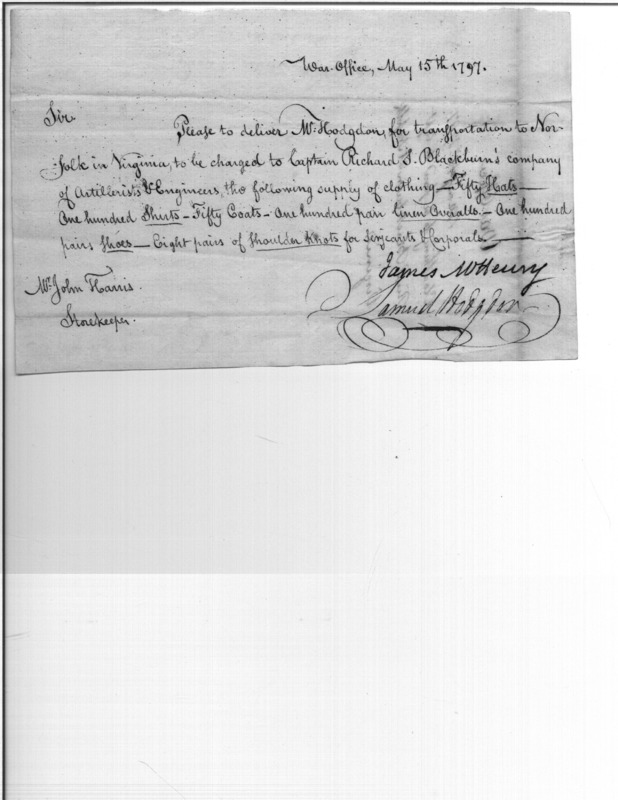 War-Office, May 15th 1797.
Sir
Please to deliver Mr. Hodgdon, for transportation to Nor-
folk in Virginia, to be charged to Captain Richard S. Blackburn's company
of Artillerists & Engineers, the following supply of clothing — Fifty Hats —
One hundred Shirts – Fifty Coats – One hundred pair linen Overalls. – One hundred
pairs Shoes — Eight pairs of Shoulder Knots for Serjeants & Corporals. —
James McHenry
Mr. John Harris
Samuel Hodgdon
Storekeeper.